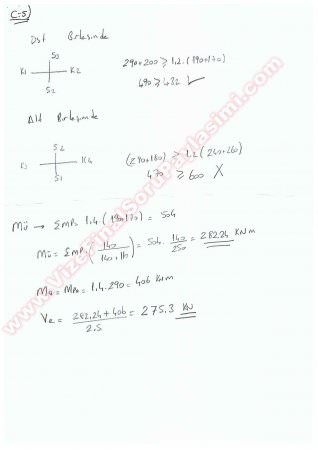 C-5)
Üst Birleşimde
S3
K1 K2
S2
290+200 ≥ 1.2.(190+170)
490 ≥ 432 ✓
Alt Birleşimde
S2
K3 K4
S1
(290+180) ≥ 1.2(240+260)
470 ≥ 600 X
Mü → ΣMPi 1.4(190+170) = 504
Mü = ΣMPi (140 / 140+110) = 504 . 140/250 = 282.24 KNm
Ma = MPa = 1.4.290 = 406 KNm
Ve = 282.24 + 406 / 2.5 = 275.3 KN
www.VizeFinalSoruPaylasimi.com